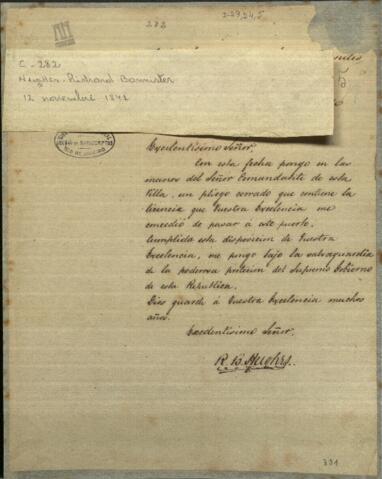 282
2-29,24,5
C-282
Hughes, Richard Bannister
12 noviembre 1841
Excelentísimo Señor,
Con esta fecha pongo en las
manos del Señor Comandante de esta
Villa, un pliego cerrado que contiene la
licencia que Vuestra Excelencia me
concedió de pasar á este puerto.
Cumplida esta disposicion de Vuestra
Excelencia, me pongo bajo la salvaguardia
de la poderosa protecion del Supremo Gobierno
de esta Republica.
Dios guarde á Vuestra Excelencia muchos
años.
Excelentísimo Señor,
R. B. Hughes.
391